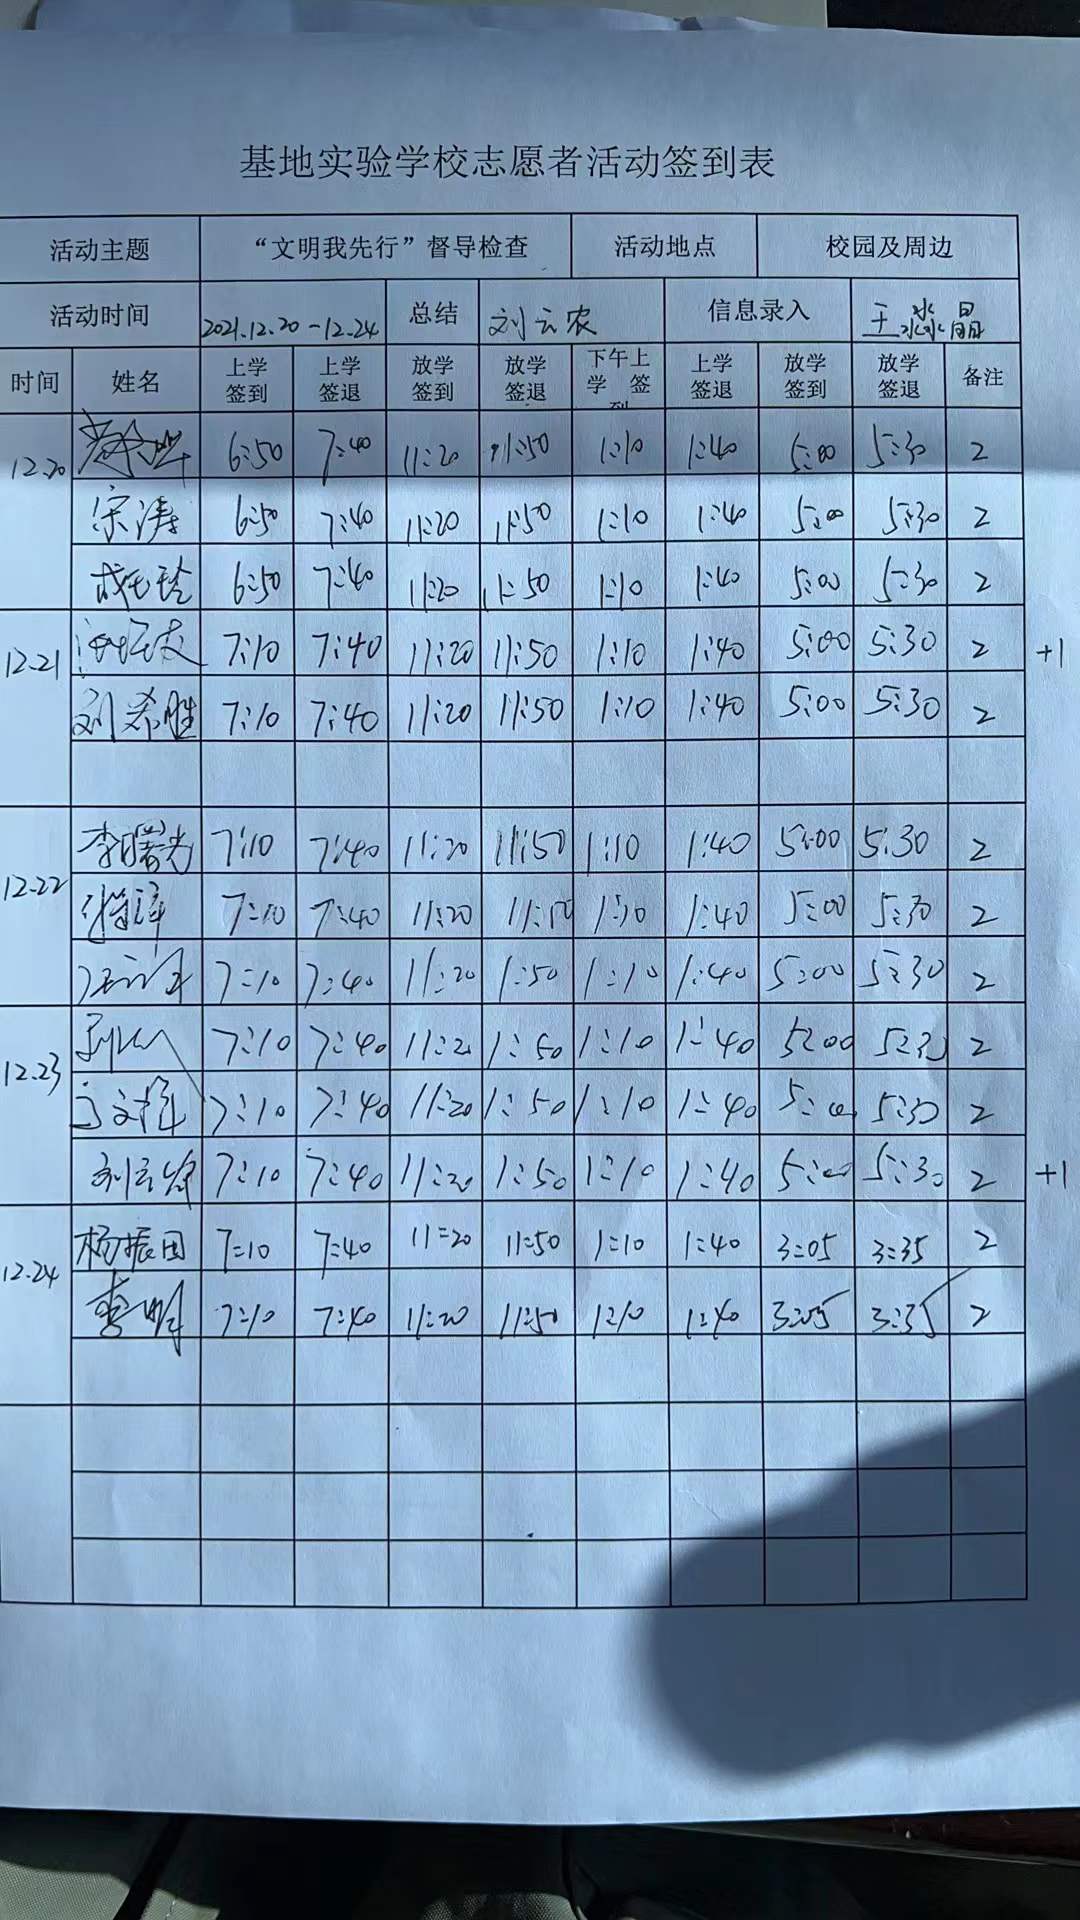 基地实验学校志愿者活动签到表
活动主题 “文明我先行”督导检查 活动地点 校园及周边
活动时间 2021.12.20-12.24 总结 刘云农 信息录入 王淼晶
时间 姓名 上学签到 上学签退 放学签到 放学签退 下午上学 签到 上学签退 放学签到 放学签退 备注
12.20 6:50 7:40 11:20 11:50 1:10 1:40 5:00 5:30 2
宋涛 6:50 7:40 11:20 11:50 1:10 1:40 5:00 5:30 2
6:50 7:40 11:20 11:50 1:10 1:40 5:00 5:30 2
12.21 7:10 7:40 11:20 11:50 1:10 1:40 5:00 5:30 2 +1
刘希胜 7:10 7:40 11:20 11:50 1:10 1:40 5:00 5:30 2
李曙光 7:10 7:40 11:20 11:50 1:10 1:40 5:00 5:30 2
12.22 7:10 7:40 11:20 11:50 1:10 1:40 5:00 5:30 2
7:10 7:40 11:20 1:50 1:10 1:40 5:00 5:30 2
12.23 7:10 7:40 11:20 1:50 1:10 1:40 5:00 5:30 2
7:10 7:40 11:20 1:50 1:10 1:40 5:00 5:30 2
7:10 7:40 11:20 1:50 1:10 1:40 5:00 5:30 2 +1
杨振田 7:10 7:40 11:20 11:50 1:10 1:40 3:05 3:35 2
12.24 李明 7:10 7:40 11:20 11:50 1:10 1:40 3:05 3:35 2